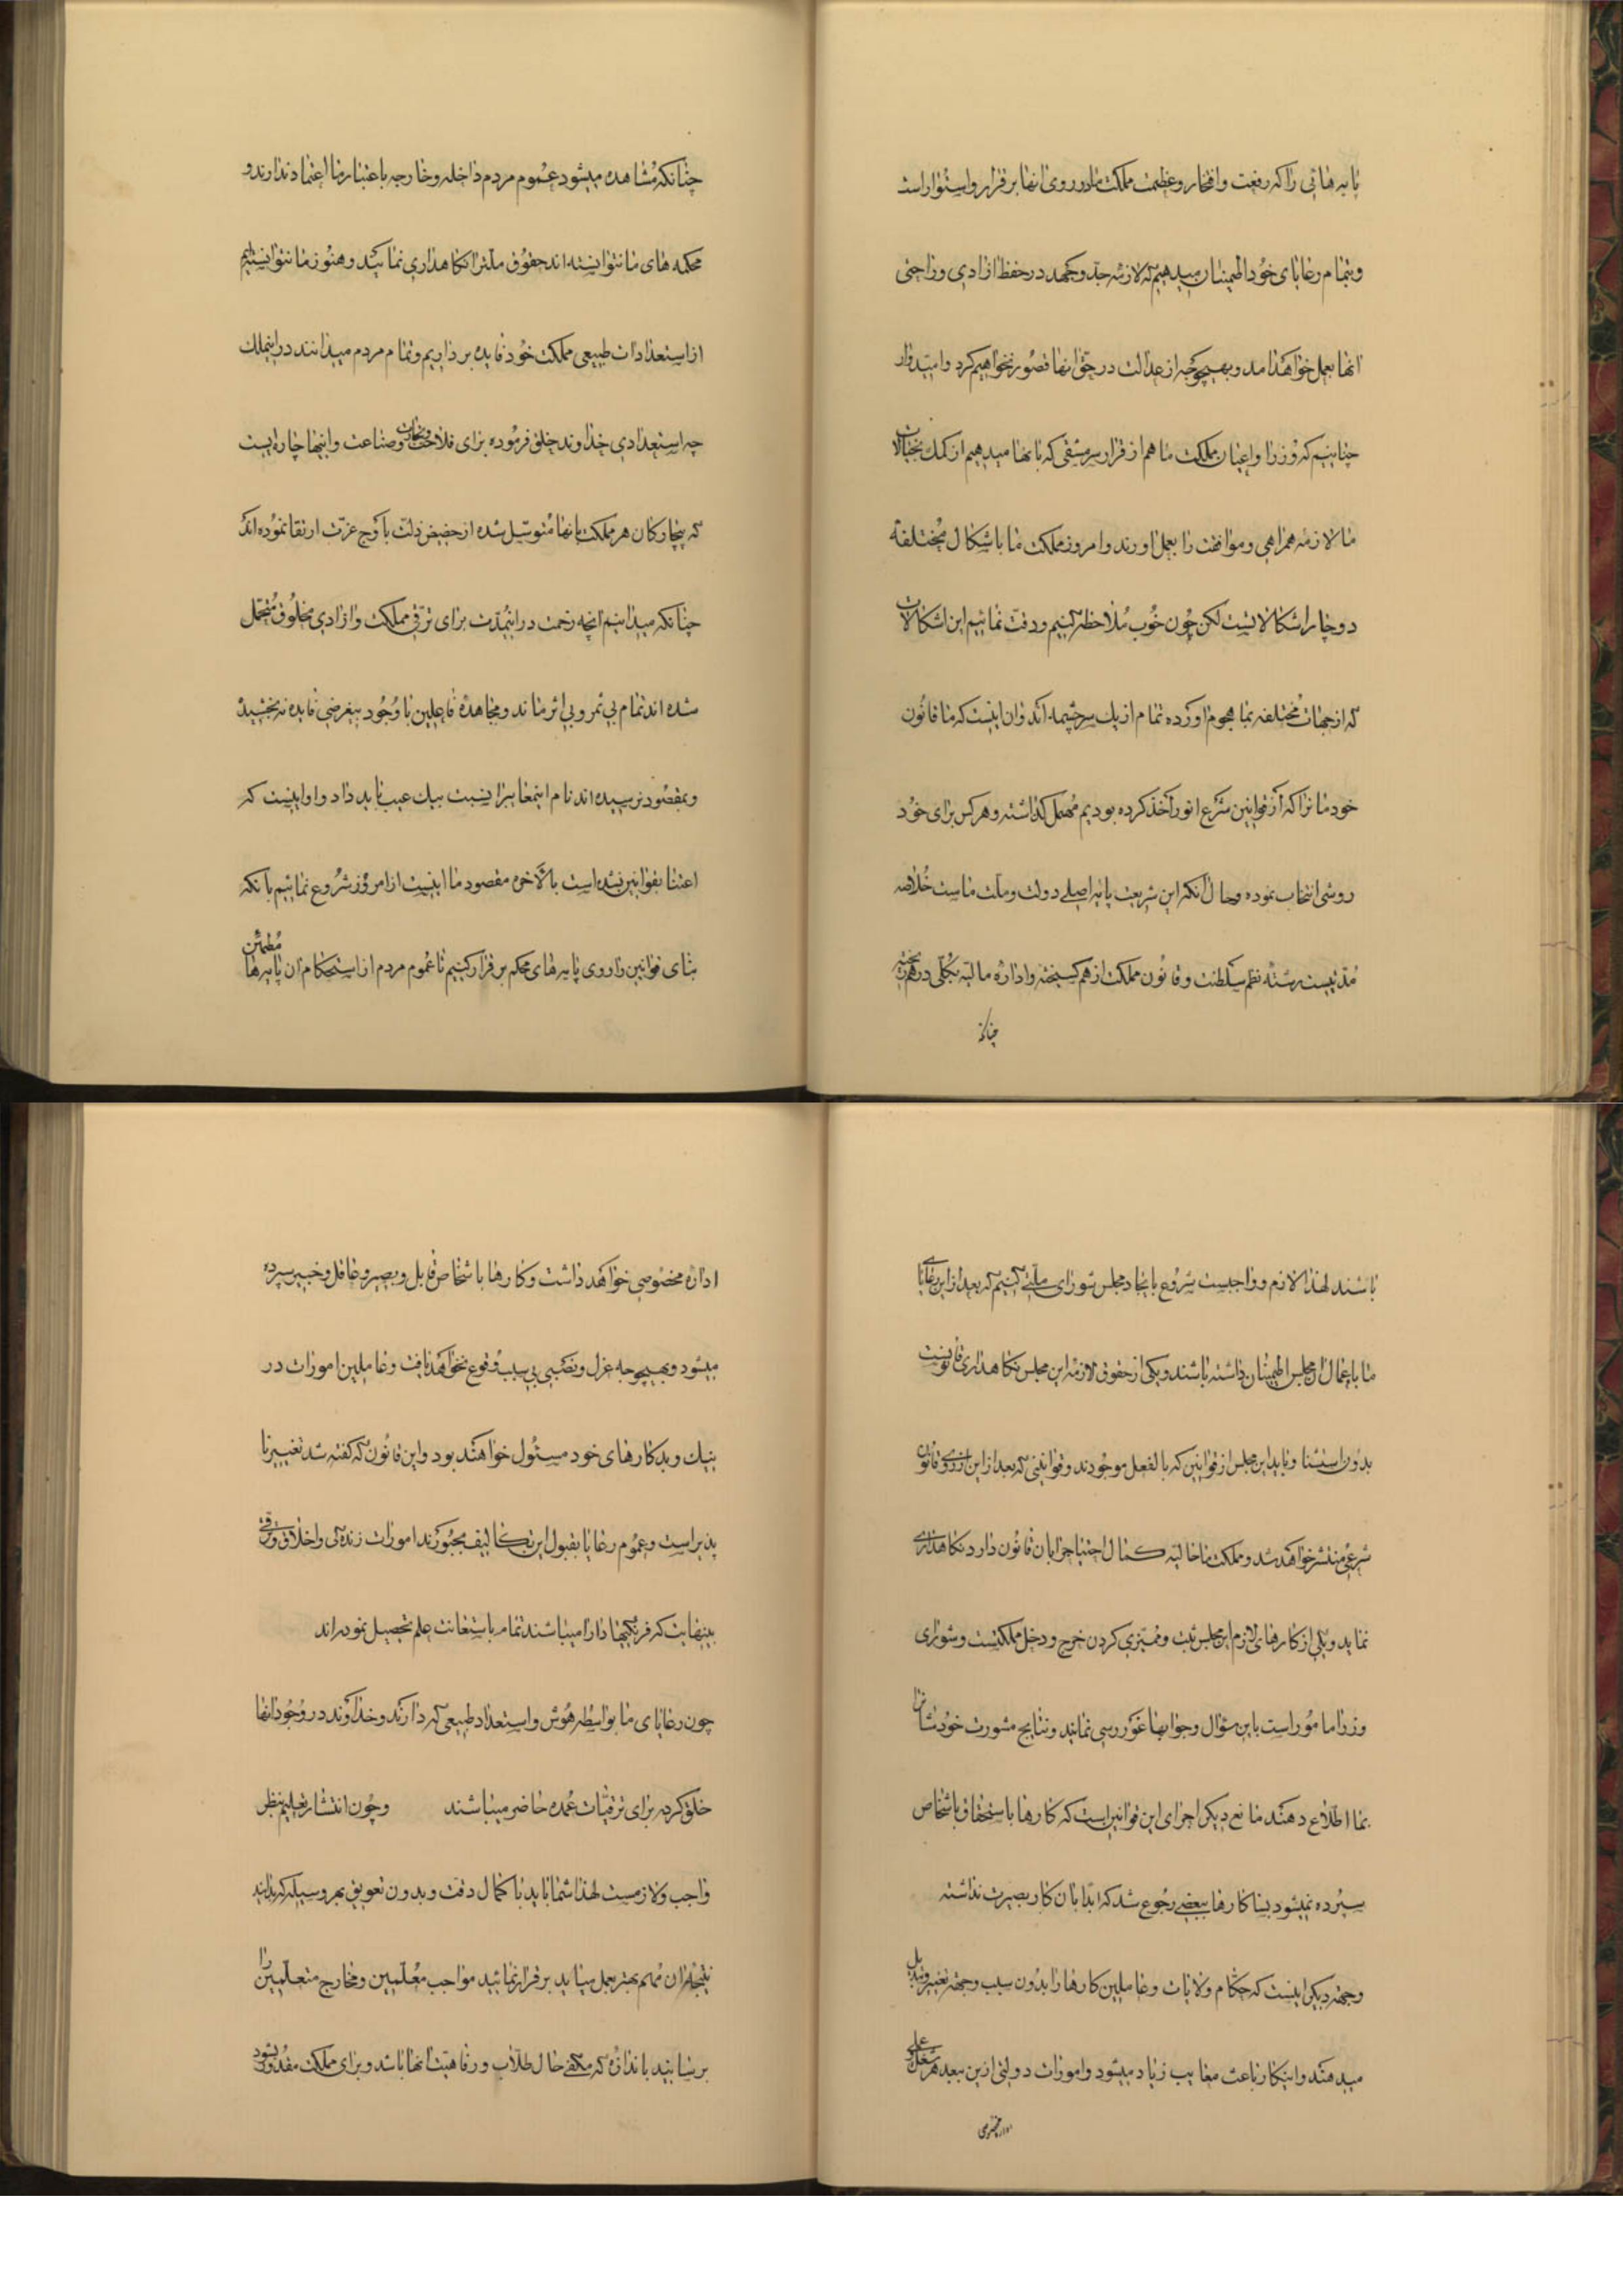 پایه هائی را که رفعت و افتخار و عظمت مملکت ما در روی انها برقرار و استوار است
و بتمام رعایای خود اطمینان میدهیم که لازمه جد و جهد در حفظ ازادی و راحتی
انها بعمل خواهد امد و بهیچوجه از عدالت در حق انها قصور نخواهیم کرد و امیدوار
چنانیم که وزرا و اعیان مملکت ما هم از قرار سرمشقی که بانها میدهیم از کمک بخیالات
ما لازمه همراهی و موافقت را بعمل اورند و امروز مملکت ما باشکال مختلفه
دوچار اشکالاتیست لکن چون خوب ملاحظه کنیم و دقت نمائیم این اشکالات
که از جهات مختلفه بما هجوم اورده تمام از یک سرچشمه اند و ان اینست که ما قانون
خودمانرا که از قوانین شرع انور اخذ کرده بودیم مهمل گذاشته و هرکس برای خود
روشی انتخاب نموده و حال انکه این شریعت پایه اصلی دولت و ملت ماست خلاصه
مدتیست رشته نظم سلطنت و قانون مملکت از هم گسیخته و اداره مالیه بکلی درهم
چنانکه
چنانکه مشاهده میشود عموم مردم داخله و خارجه باعتبار ما اعتماد ندارند و
محکمه های ما نتوانسته اند حقوق ملترا نگاهداری نمائید و هنوز ما نتوانستیم
از استعدادات طبیعی مملکت خود فایده برداریم و تمام مردم میدانند در اینملک
چه استعدادی خداوند خلق فرموده برای فلاحت و تجارت و صناعت و اینها چاره ایست
که بیچارگان هر مملکت بانها متوسل شده از حضیض ذلت باوج عزت ارتقا نموده اند
چنانکه میدانیم انچه زحمت در اینمدت برای ترقی مملکت و ازادی مخلوق متحمل
شده اند تمام بی ثمر و بی اثر ماند و مجاهده فاعلین با وجود بیغرضی فایده نه بخشید
و بمقصود نرسیده اند تمام اینمعایبرا نسبت بیک عیب باید داد و او اینست که
اعتنا بقوانین نشده است بالاخره مقصود ما اینست از امروز شروع نمائیم بانکه
بنای قوانین را روی پایه های محکم برقرار کنیم تا عموم مردم از استحکام ان پایه ها مطمئن
باشند لهذا لازم و واجبست شروع بایجاد مجلس شورای ملتی کنیم که بعد از این رعایای
ما باعمال ان مجلس اطمینان داشته باشند و یکی از حقوق لازمه این مجلس نگاهداری قانونست
بدون استثنا و باید این مجلس از قوانین که بالفعل موجودند و قوانینی که بعد از این از روی قانون
شرعی منتشر خواهد شد و مملکت ما حالیه کمال احتیاج را بان قانون دارد نگاهداری
نماید و یکی از کارهای لازم این مجلس ثبت و ممیزی کردن خرج و دخل مملکتست و شورای
وزرا ماموراست باین سؤال و جوابها غوررسی نمایند و نتایج مشورت خودشانرا
بما اطلاع دهند مانع دیگر اجرای این قوانین است که کارها باستحقاق باشخاص
سپرده نمیشود بسا کارها ببعضی رجوع شد که ابدا بان کار بصیرت نداشته
و جهة دیگر اینست که حکام ولایات و عاملین کارها را بدون سبب و جهة تغییر و تبدیل
میدهند و اینکار باعث معایب زیاد میشود و امورات دولتی ازین ببعد هر شغل
اداره مخصوصی
اداره مخصوصی خواهد داشت و کارها باشخاص قابل و بصیر و عاقل و خبیر سپرده
میشود و بهیچوجه عزل و نصبی بی سبب وقوع نخواهد یافت و عاملین امورات در
نیک و بد کارهای خود مسئول خواهند بود و این قانون که گفته شد تغییر نا
پذیر است و عموم رعایا بقبول این تکالیف مجبورند امورات زندگی و اخلاق و ترقی
بینهایت که فرنگیها دارا میباشند تمام باستعانت علم تحصیل نموده اند
چون رعایای ما بواسطه هوش و استعداد طبیعی که دارند و خداوند در وجود انها
خلق کرده برای ترقیات عمده حاضر میباشند و چون انتشار تعلیم بنظر
واجب و لازمست لهذا شما باید با کمال دقت و بدون تعویق بهر وسیله که بدانید
نتیجه ان مهم بهتر بعمل میاید برقرار نمائید مواجب معلمین و مخارج متعلمین را
برسانید باندازه که مکفی حال طلاب و رفاهیت انها باشد و برای مملکت مقدور شود